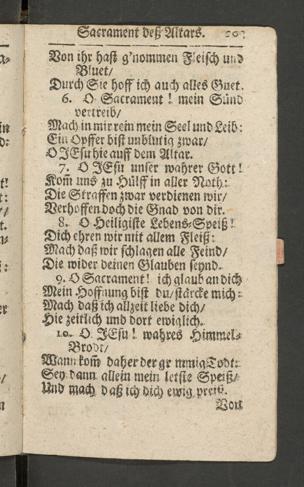 Sacrament deß Altars.
Von ihr hast g'nommen Fleisch und
Bluet/
Durch Sie hoff ich auch alles Guet.
6. O Sacrament! mein Sünd
vertreib/
Mach in mir rein mein Seel und Leib:
Ein Opffer bist unblutig zwar/
O JEsu hie auff dem Altar.
7. O JEsu unser wahrer Gott!
Kom̃ uns zu Hülff in aller Noth:
Die Straffen zwar verdienen wir/
Verhoffen doch die Gnad von dir.
8. O Heiligiste Lebens-Speiß!
Dich ehren wir mit allem Fleiß:
Mach daß wir schlagen alle Feind/
Die wider deinen Glauben seynd.
9. O Sacrament! ich glaub an dich
Mein Hoffnung bist du/stärcke mich:
Mach daß ich allzeit liebe dich/
Hie zeitlich und dort ewiglich.
10. O JEsu! wahres Himmel-
Brodt/
Wann kom̃ daher der gr mmig Todt:
Sey dann allein mein letste Speiß/
Und mach daß ich dich ewig preiß.
Von